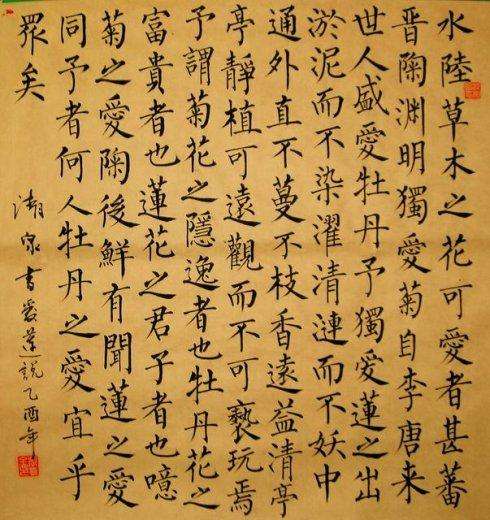 水陸草木之花可愛者甚蕃
晋陶渊明獨愛菊自李唐来
世人盛愛牡丹予獨愛蓮之出
淤泥而不染濯清漣而不妖中
通外直不蔓不枝香遠益清亭
亭靜植可遠觀而不可褻玩焉
予謂菊花之隱逸者也牡丹花之
富貴者也蓮花之君子者也噫
菊之愛陶後鮮有聞蓮之愛
同予者何人牡丹之愛宜乎
眾矣
書愛蓮說乙酉年